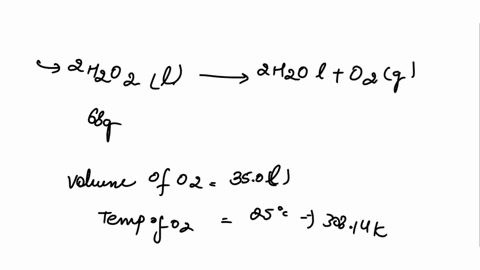 ↪ 2H2O2 (l) ⟶ 2H2O l + O2 (g)
68g
volume of O2 = 35.0 l)
Temp of O2 = 25°c → 308.14K